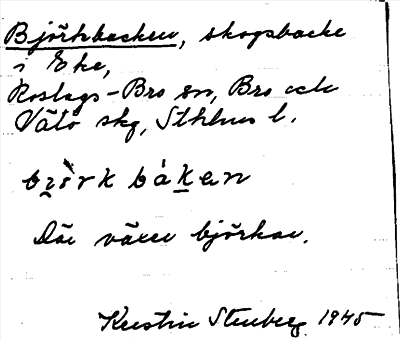 Björkbacken, skogsbacke
i Eke,
Roslags-Bro sn, Bro och
Vätö skg, Sthlms l.
björk baken
Där växer björkar.
Kerstin Stenberg 1945